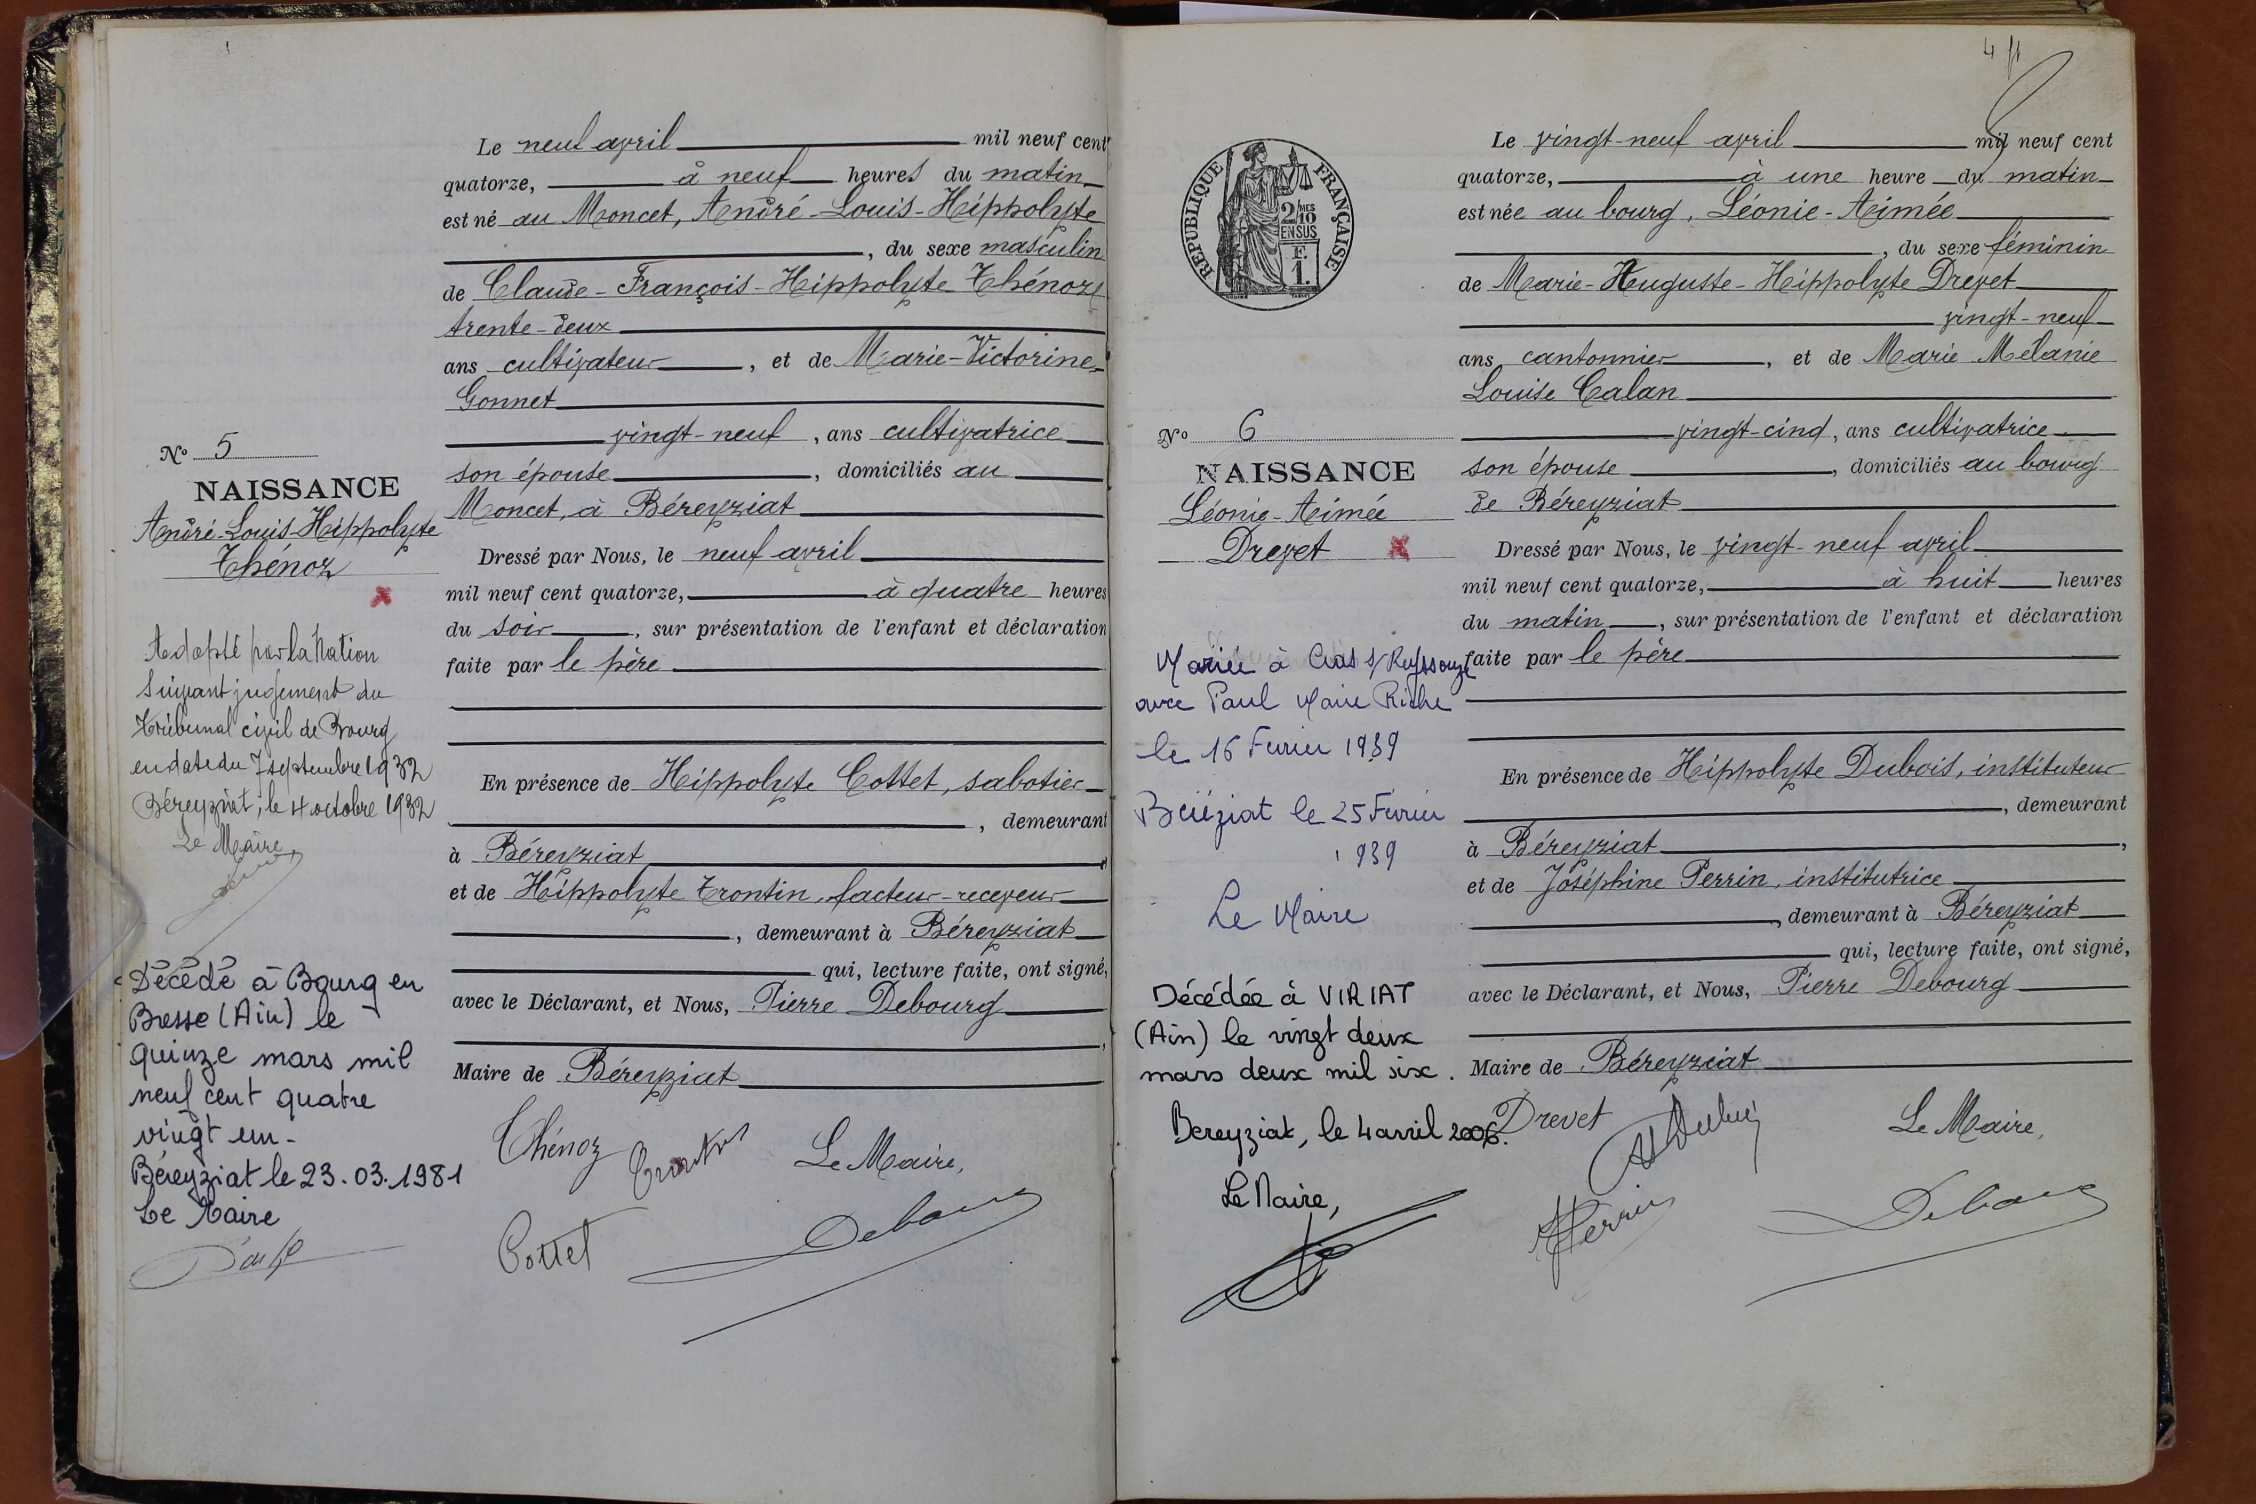 Le neuf avril mil neuf cent
quatorze, à neuf heures du matin
est né au Moncet, André-Louis-Hippolyte
, du sexe masculin
de Claude-François-Hippolyte Thénoz
trente-deux
ans cultivateur, et de Marie-Victorine
Gonnet
vingt-neuf, ans cultivatrice
son épouse, domiciliés au
Moncet, à Béreyziat
Dressé par Nous, le neuf avril
mil neuf cent quatorze, à quatre heures
du soir, sur présentation de l'enfant et déclaration
faite par le père
En présence de Hippolyte Cottet, sabotier
, demeurant
à Béreyziat
et de Hippolyte Trontin, facteur-receveur
, demeurant à Béreyziat
qui, lecture faite, ont signé,
avec le Déclarant, et Nous, Pierre Debourg
,
Maire de Béreyziat
Thénoz Trontin Le Maire,
Cottet Debourg
No 5
NAISSANCE
André-Louis-Hippolyte
Thénoz
Adopté par la Nation
suivant jugement du
Tribunal civil de Bourg
en date du 7 septembre 1932
Béreyziat, le 4 octobre 1932
Le Maire,
Décédé à Bourg en
Bresse (Ain) le
quinze mars mil
neuf cent quatre
vingt un-
Béreyziat le 23.03.1981
Le Maire
4
RÉPUBLIQUE FRANÇAISE
2/10MES
EN SUS
F.
1.
Le vingt-neuf avril mil neuf cent
quatorze, à une heure du matin
est née au bourg, Léonie-Aimée
, du sexe féminin
de Marie-Auguste-Hippolyte Drevet
vingt-neuf
ans cantonnier, et de Marie Mélanie
Louise Calan
vingt-cinq, ans cultivatrice
son épouse, domiciliés au bourg
de Béreyziat
Dressé par Nous, le vingt-neuf avril
mil neuf cent quatorze, à huit heures
du matin, sur présentation de l'enfant et déclaration
faite par le père
En présence de Hippolyte Dubois, instituteur
, demeurant
à Béreyziat,
et de Joséphine Perrin, institutrice
, demeurant à Béreyziat
qui, lecture faite, ont signé,
avec le Déclarant, et Nous, Pierre Debourg
Maire de Béreyziat
Drevet Le Maire,
Perrin Debourg
No 6
NAISSANCE
Léonie-Aimée
Drevet
Mariée à Cras s/Reyssouze
avec Paul Marie Riche
le 16 Février 1939
Béréziat le 25 Février
1939
Le Maire
Décédée à VIRIAT
(Ain) le vingt deux
mars deux mil six.
Bereyziat, le 4 avril 2006.
Le Maire,